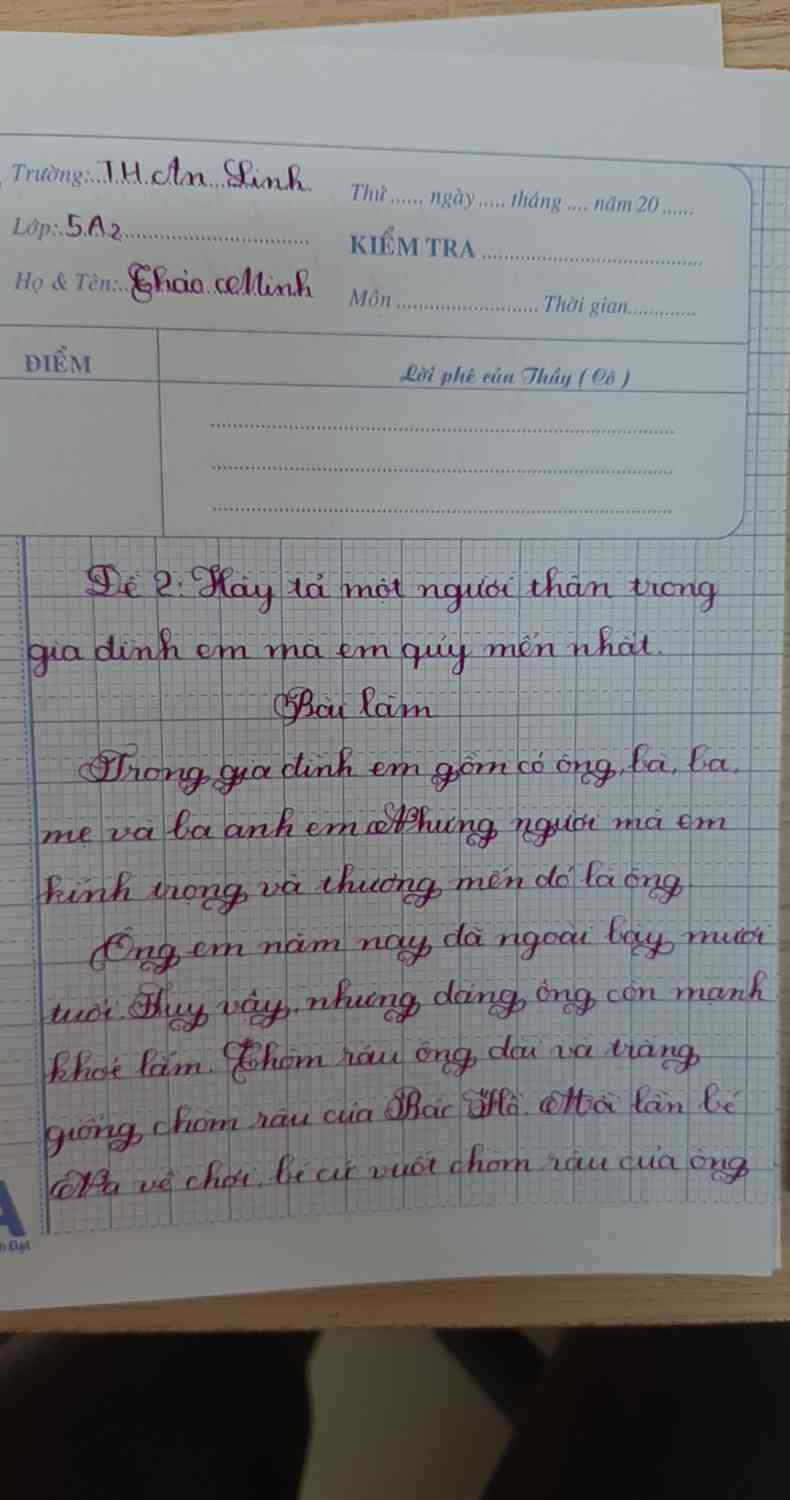 Trường:..T.H.An..Linh.
Thứ ...... ngày ..... tháng .... năm 20 ......
Lớp:.5.A2................................
KIỂM TRA ....................................
Họ & Tên:..Thảo..Minh
Môn .......................... Thời gian.............
ĐIỂM
Lời phê của Thầy ( Cô )
Đề 2: Hãy tả một người thân trong
gia đình em mà em quý mến nhất.
Bài làm
Trong gia đình em gồm có ông, bà, ba,
mẹ và ba anh em. Những người mà em
kính trọng và thương mến đó là ông
Ông em năm nay đã ngoài bảy mươi
tuổi. Tuy vậy, nhưng dáng ông còn mạnh
khoẻ lắm. Chòm râu ông dài và trắng
giống chòm râu của Bác Hồ. Mỗi lần bé
Na về chơi, bé cứ vuốt chòm râu của ông
A
h Đạt